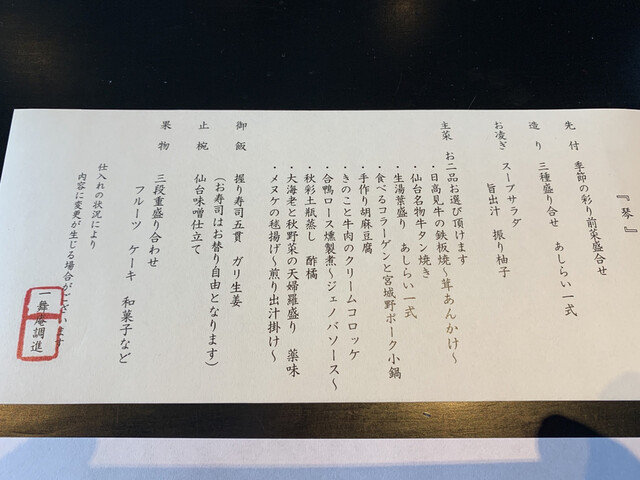 『琴』
先付 季節の彩り前菜盛合せ
造り 三種盛り合せ あしらい一式
お凌ぎ スープサラダ
旨出汁 振り柚子
主菜 お二品お選び頂けます
・日高見牛の鉄板焼~茸あんかけ~
・仙台名物牛タン焼き
・生湯葉盛り あしらい一式
・食べるコラーゲンと宮城野ポーク小鍋
・手作り胡麻豆腐
・きのこと牛肉のクリームコロッケ
・合鴨ロース燻製煮~ジェノバソース~
・秋彩土瓶蒸し 酢橘
・大海老と秋野菜の天婦羅盛り 薬味
・メヌケの毬揚げ~煎り出汁掛け~
御飯 握り寿司五貫 ガリ生姜
(お寿司はお替り自由となります)
止椀 仙台味噌仕立て
果物 三段重盛り合わせ
フルーツ ケーキ 和菓子など
仕入れの状況により
内容に変更が生じる場合がございます
一舞庵調進